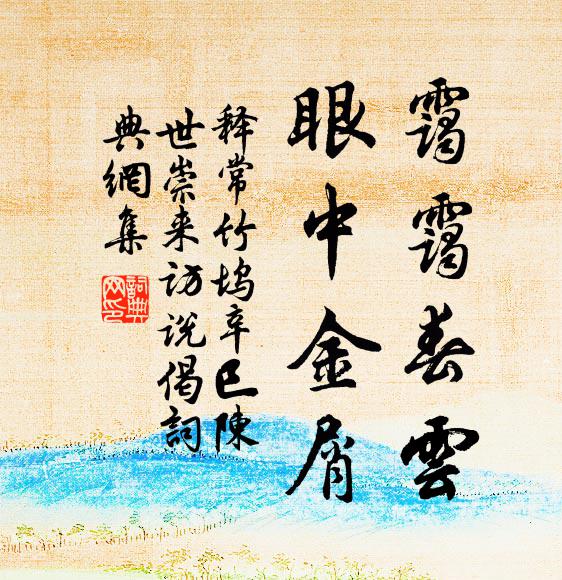 霭霭春雲
眼中金屑
释常竹坞辛巳陳
世崇来访说偈詞
典網集
詞典
网印